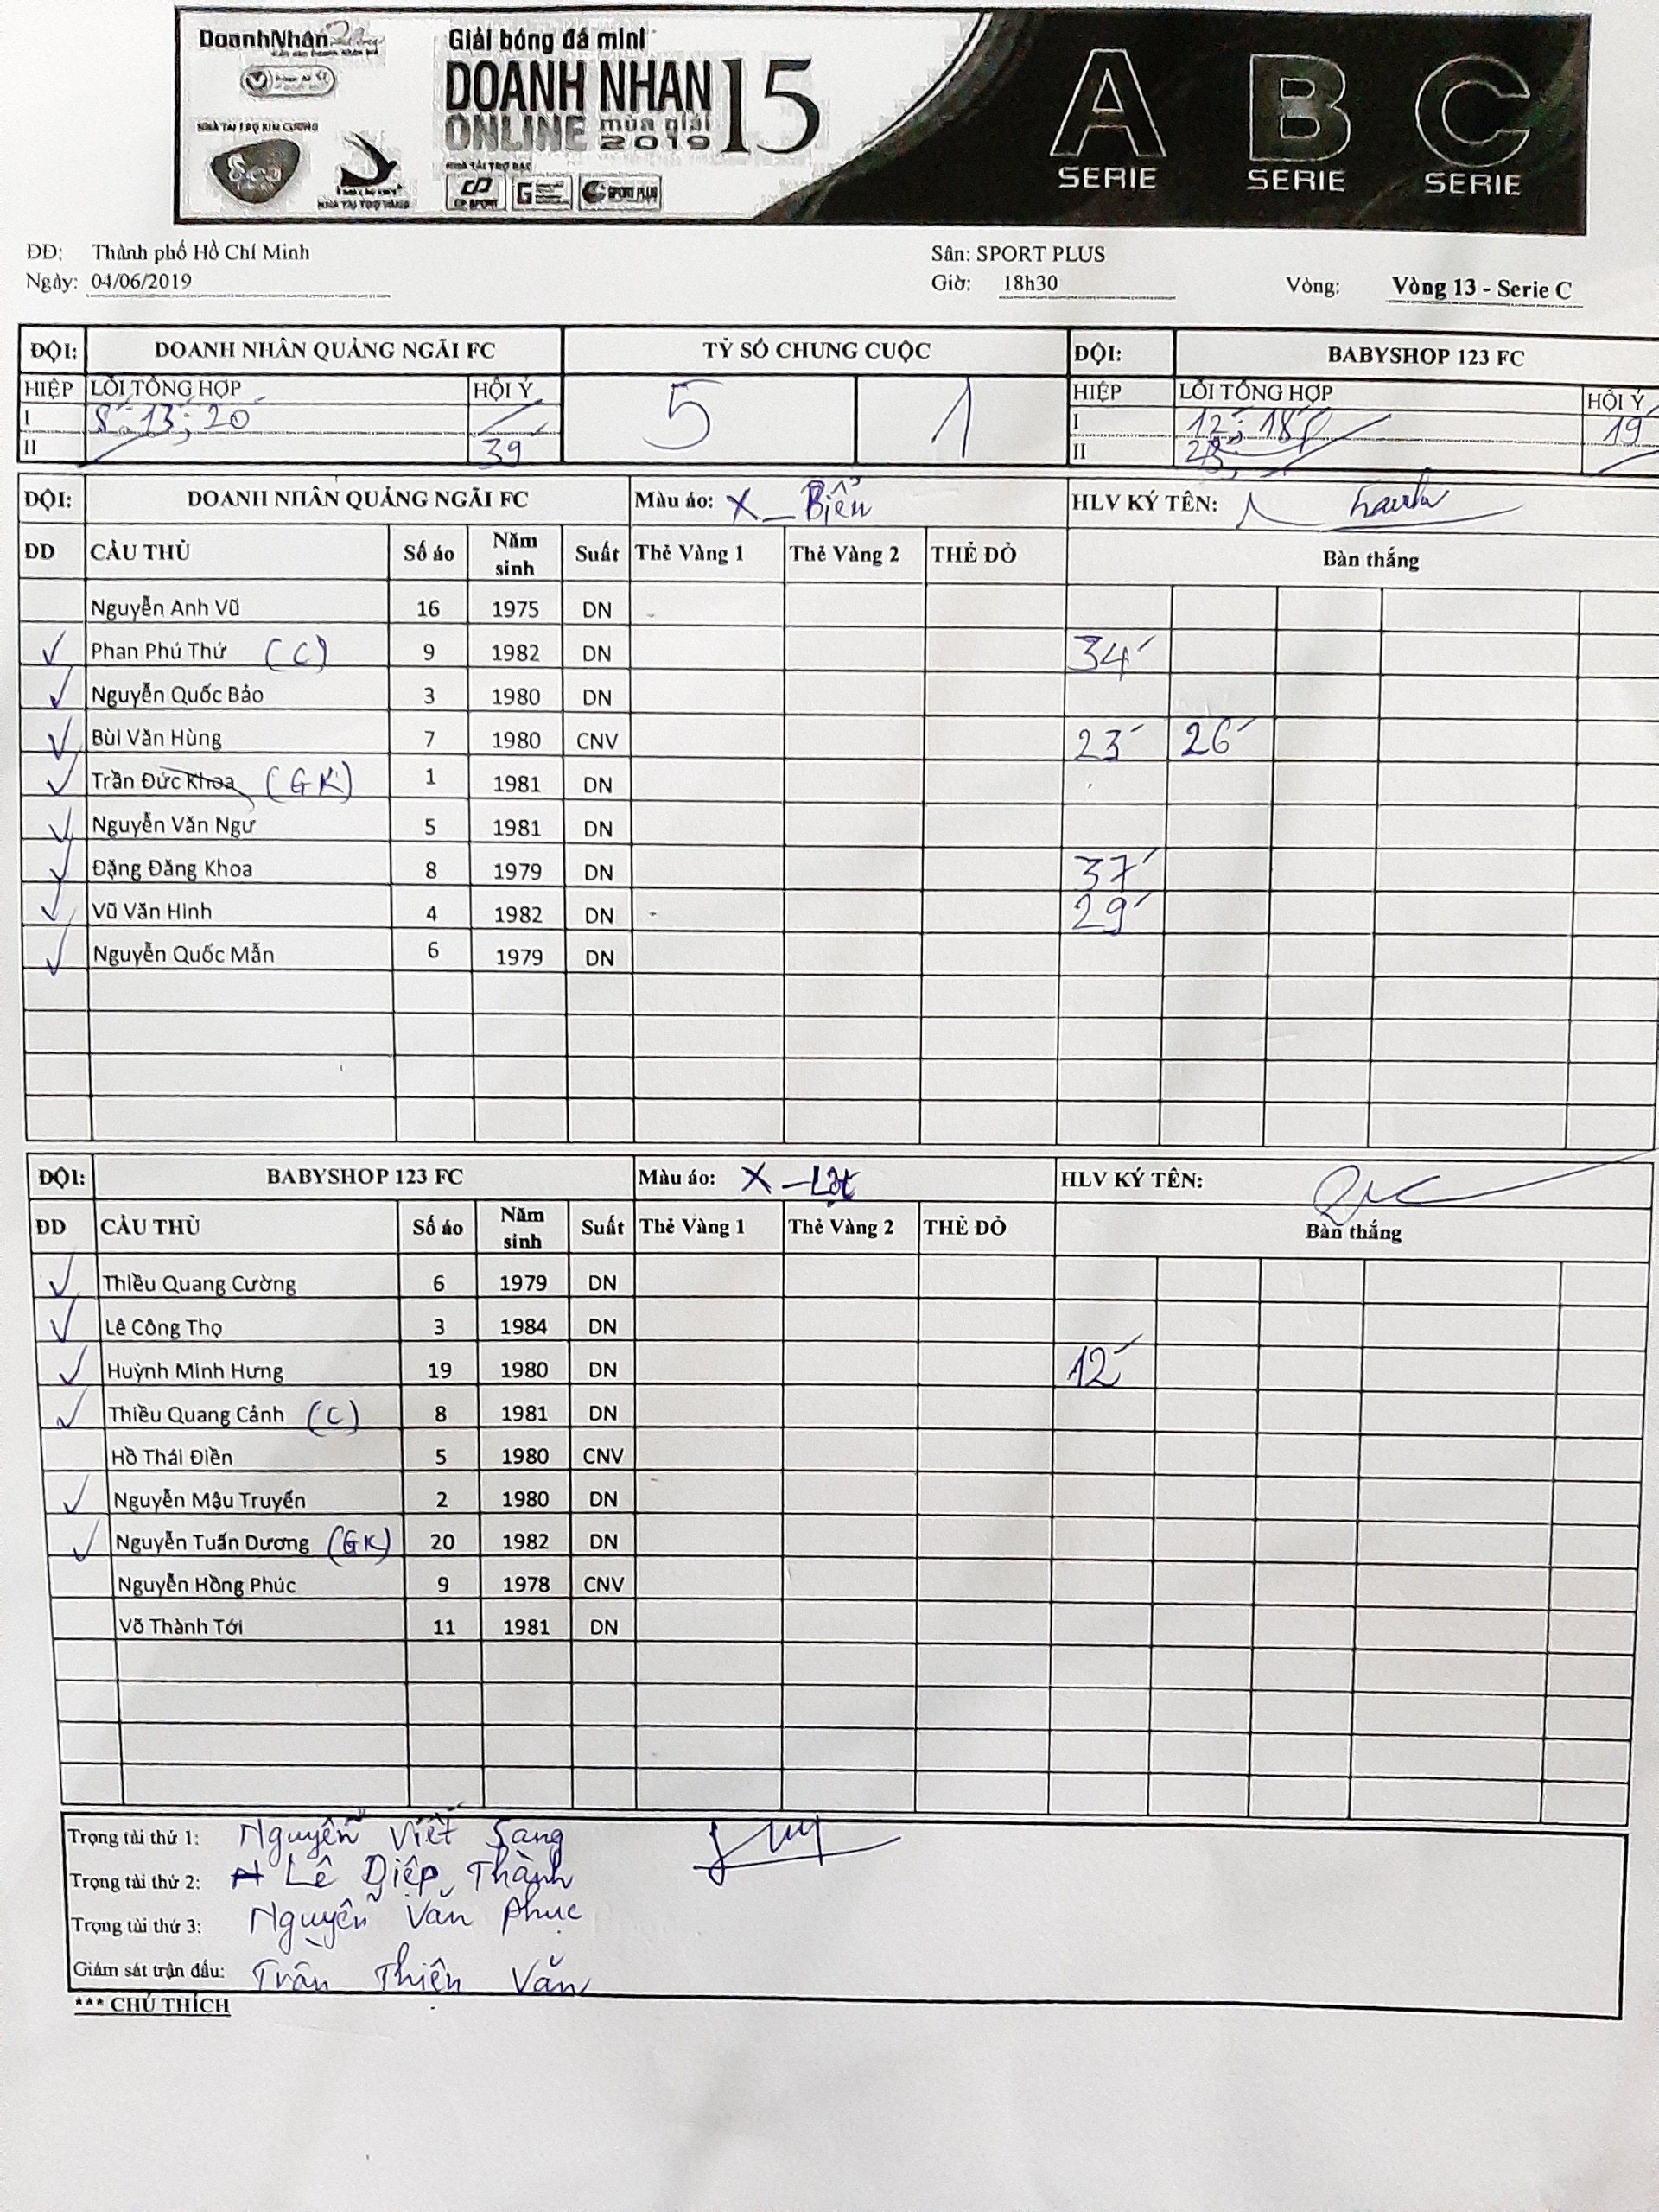 DoanhNhân
Giải bóng đá mini
DOANH NHAN
ONLINE mùa giải 2019 15
NHÀ TÀI TRỢ KIM CƯƠNG
NHÀ TÀI TRỢ BẠC
NHÀ TÀI TRỢ VÀNG
CP SPORT G SPORT PLUS
A B C
SERIE SERIE SERIE
ĐĐ: Thành phố Hồ Chí Minh Sân: SPORT PLUS
Ngày: 04/06/2019 Giờ: 18h30 Vòng: Vòng 13 - Serie C
ĐỘI: DOANH NHÂN QUẢNG NGÃI FC TỶ SỐ CHUNG CUỘC ĐỘI: BABYSHOP 123 FC
HIỆP LỖI TỔNG HỢP HỘI Ý 5 1 HIỆP LỖI TỔNG HỢP HỘI Ý
I 8'; 13'; 20 I 12'; 18' 19
II 39 II 28
ĐỘI: DOANH NHÂN QUẢNG NGÃI FC Màu áo: X_Biển HLV KÝ TÊN:
ĐD CẦU THỦ Số áo Năm sinh Suất Thẻ Vàng 1 Thẻ Vàng 2 THẺ ĐỎ Bàn thắng
Nguyễn Anh Vũ 16 1975 DN
✓ Phan Phú Thứ (C) 9 1982 DN 34'
✓ Nguyễn Quốc Bảo 3 1980 DN
✓ Bùi Văn Hùng 7 1980 CNV 23' 26'
✓ Trần Đức Khoa (GK) 1 1981 DN
✓ Nguyễn Văn Ngư 5 1981 DN
✓ Đặng Đăng Khoa 8 1979 DN 37'
✓ Vũ Văn Hinh 4 1982 DN 29'
✓ Nguyễn Quốc Mẫn 6 1979 DN
ĐỘI: BABYSHOP 123 FC Màu áo: X-Lợt HLV KÝ TÊN:
ĐD CẦU THỦ Số áo Năm sinh Suất Thẻ Vàng 1 Thẻ Vàng 2 THẺ ĐỎ Bàn thắng
✓ Thiều Quang Cường 6 1979 DN
✓ Lê Công Thọ 3 1984 DN
✓ Huỳnh Minh Hưng 19 1980 DN 12'
✓ Thiều Quang Cảnh (C) 8 1981 DN
Hồ Thái Điền 5 1980 CNV
✓ Nguyễn Mậu Truyến 2 1980 DN
✓ Nguyễn Tuấn Dương (GK) 20 1982 DN
Nguyễn Hồng Phúc 9 1978 CNV
Võ Thành Tới 11 1981 DN
Trọng tài thứ 1: Nguyễn Viết Sang
Trọng tài thứ 2: Lê Diệp Thành
Trọng tài thứ 3: Nguyễn Văn Phục
Giám sát trận đấu: Trần Thiện Văn
*** CHÚ THÍCH